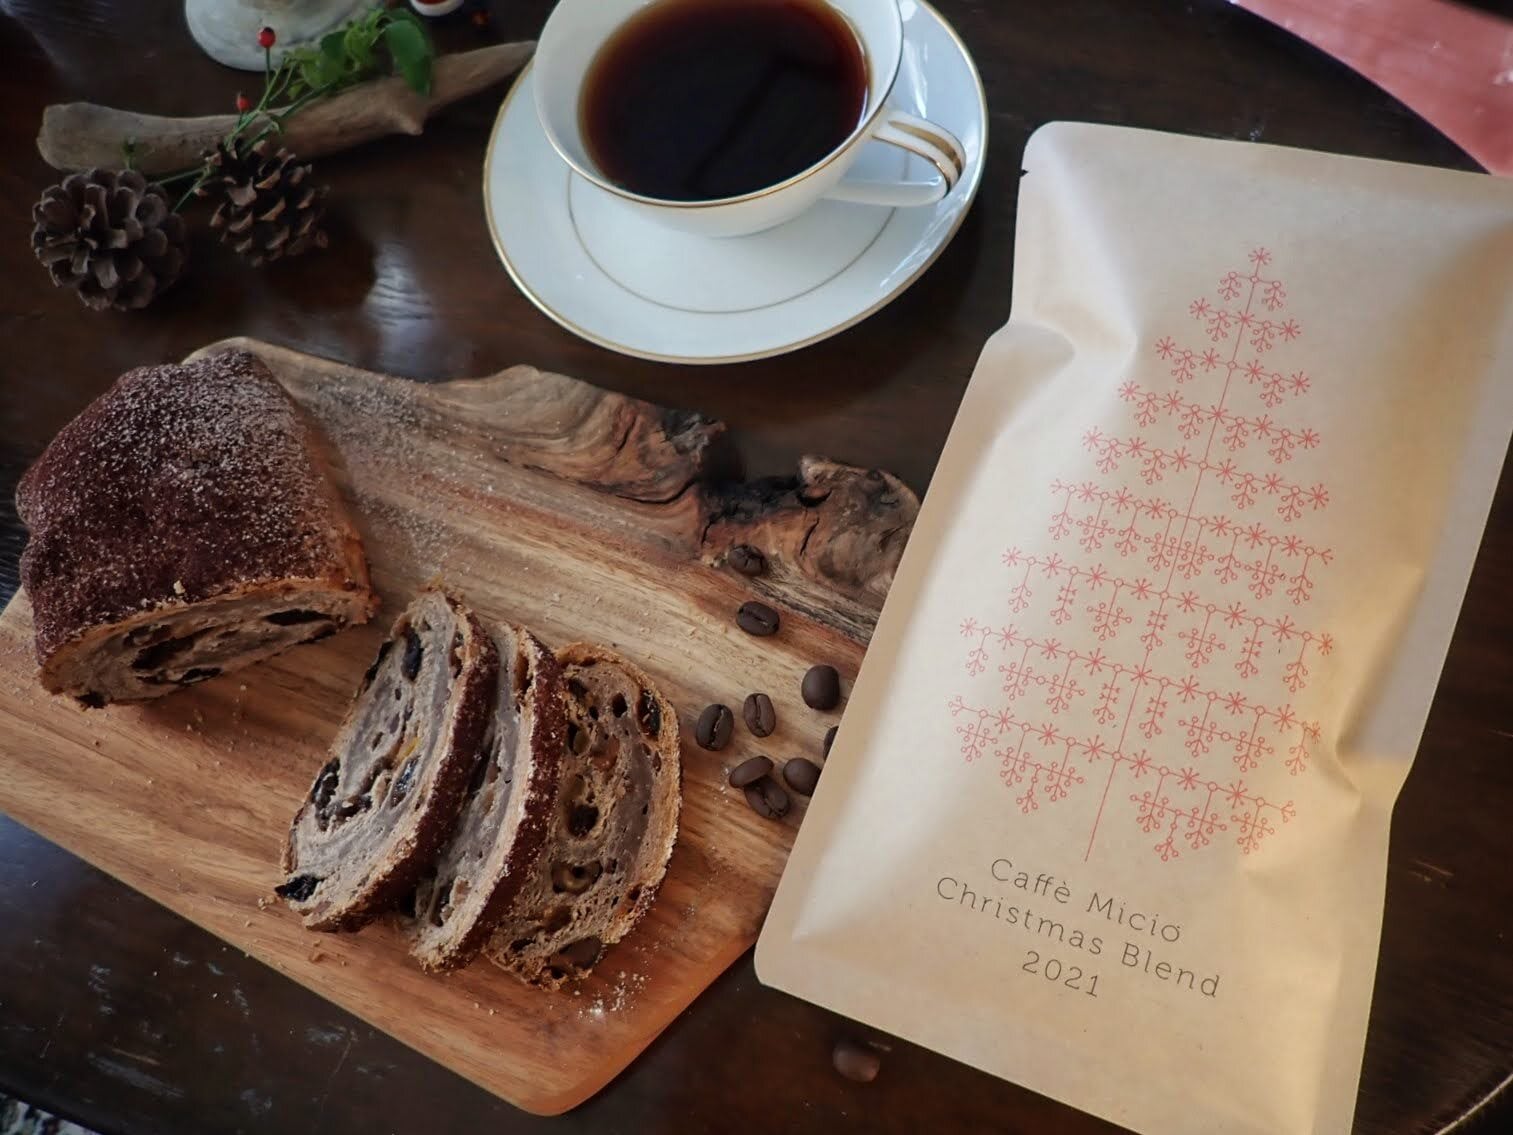 Caffè Micio
Christmas Blend
2021